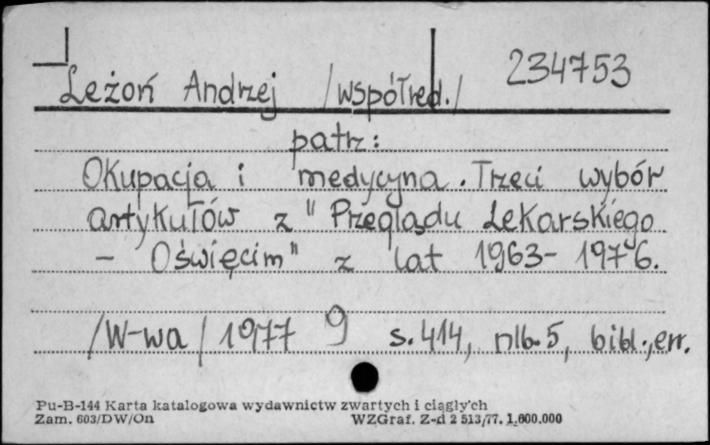 Leżoń Andrzej /współred./ 234753
patrz:
Okupacja i medycyna. Trzeci wybór
artykułów z "Przeglądu Lekarskiego
- Oświęcim" z lat 1963-1976.
/W-wa/ 1977 9 s. 414, nlb. 5, bibl., err.
Pu-B-144 Karta katalogowa wydawnictw zwartych i ciągłych
Zam. 603/DW/On WZGraf. Z-d 2 513/77. 1.600.000